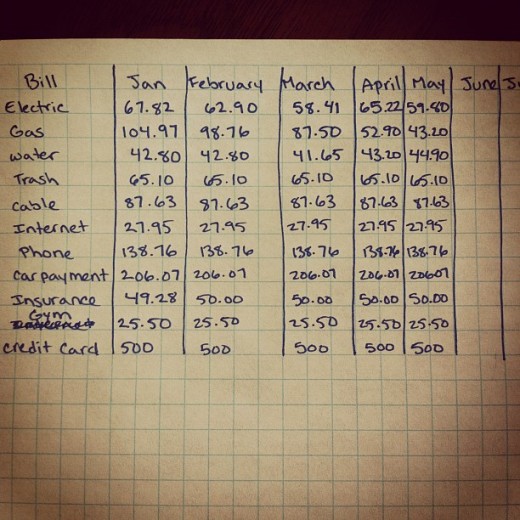 Bill Jan February March April May June
Electric 67.82 62.90 58.41 65.22 59.80
Gas 104.97 98.76 87.50 52.90 43.20
Water 42.80 42.80 41.65 43.20 44.90
Trash 65.10 65.10 65.10 65.10 65.10
Cable 87.63 87.63 87.63 87.63 87.63
Internet 27.95 27.95 27.95 27.95 27.95
Phone 138.76 138.76 138.76 138.76 138.76
Car payment 206.07 206.07 206.07 206.07 206.07
Insurance 49.28 50.00 50.00 50.00 50.00
Gym 25.50 25.50 25.50 25.50 25.50
Credit Card 500 500 500 500 500